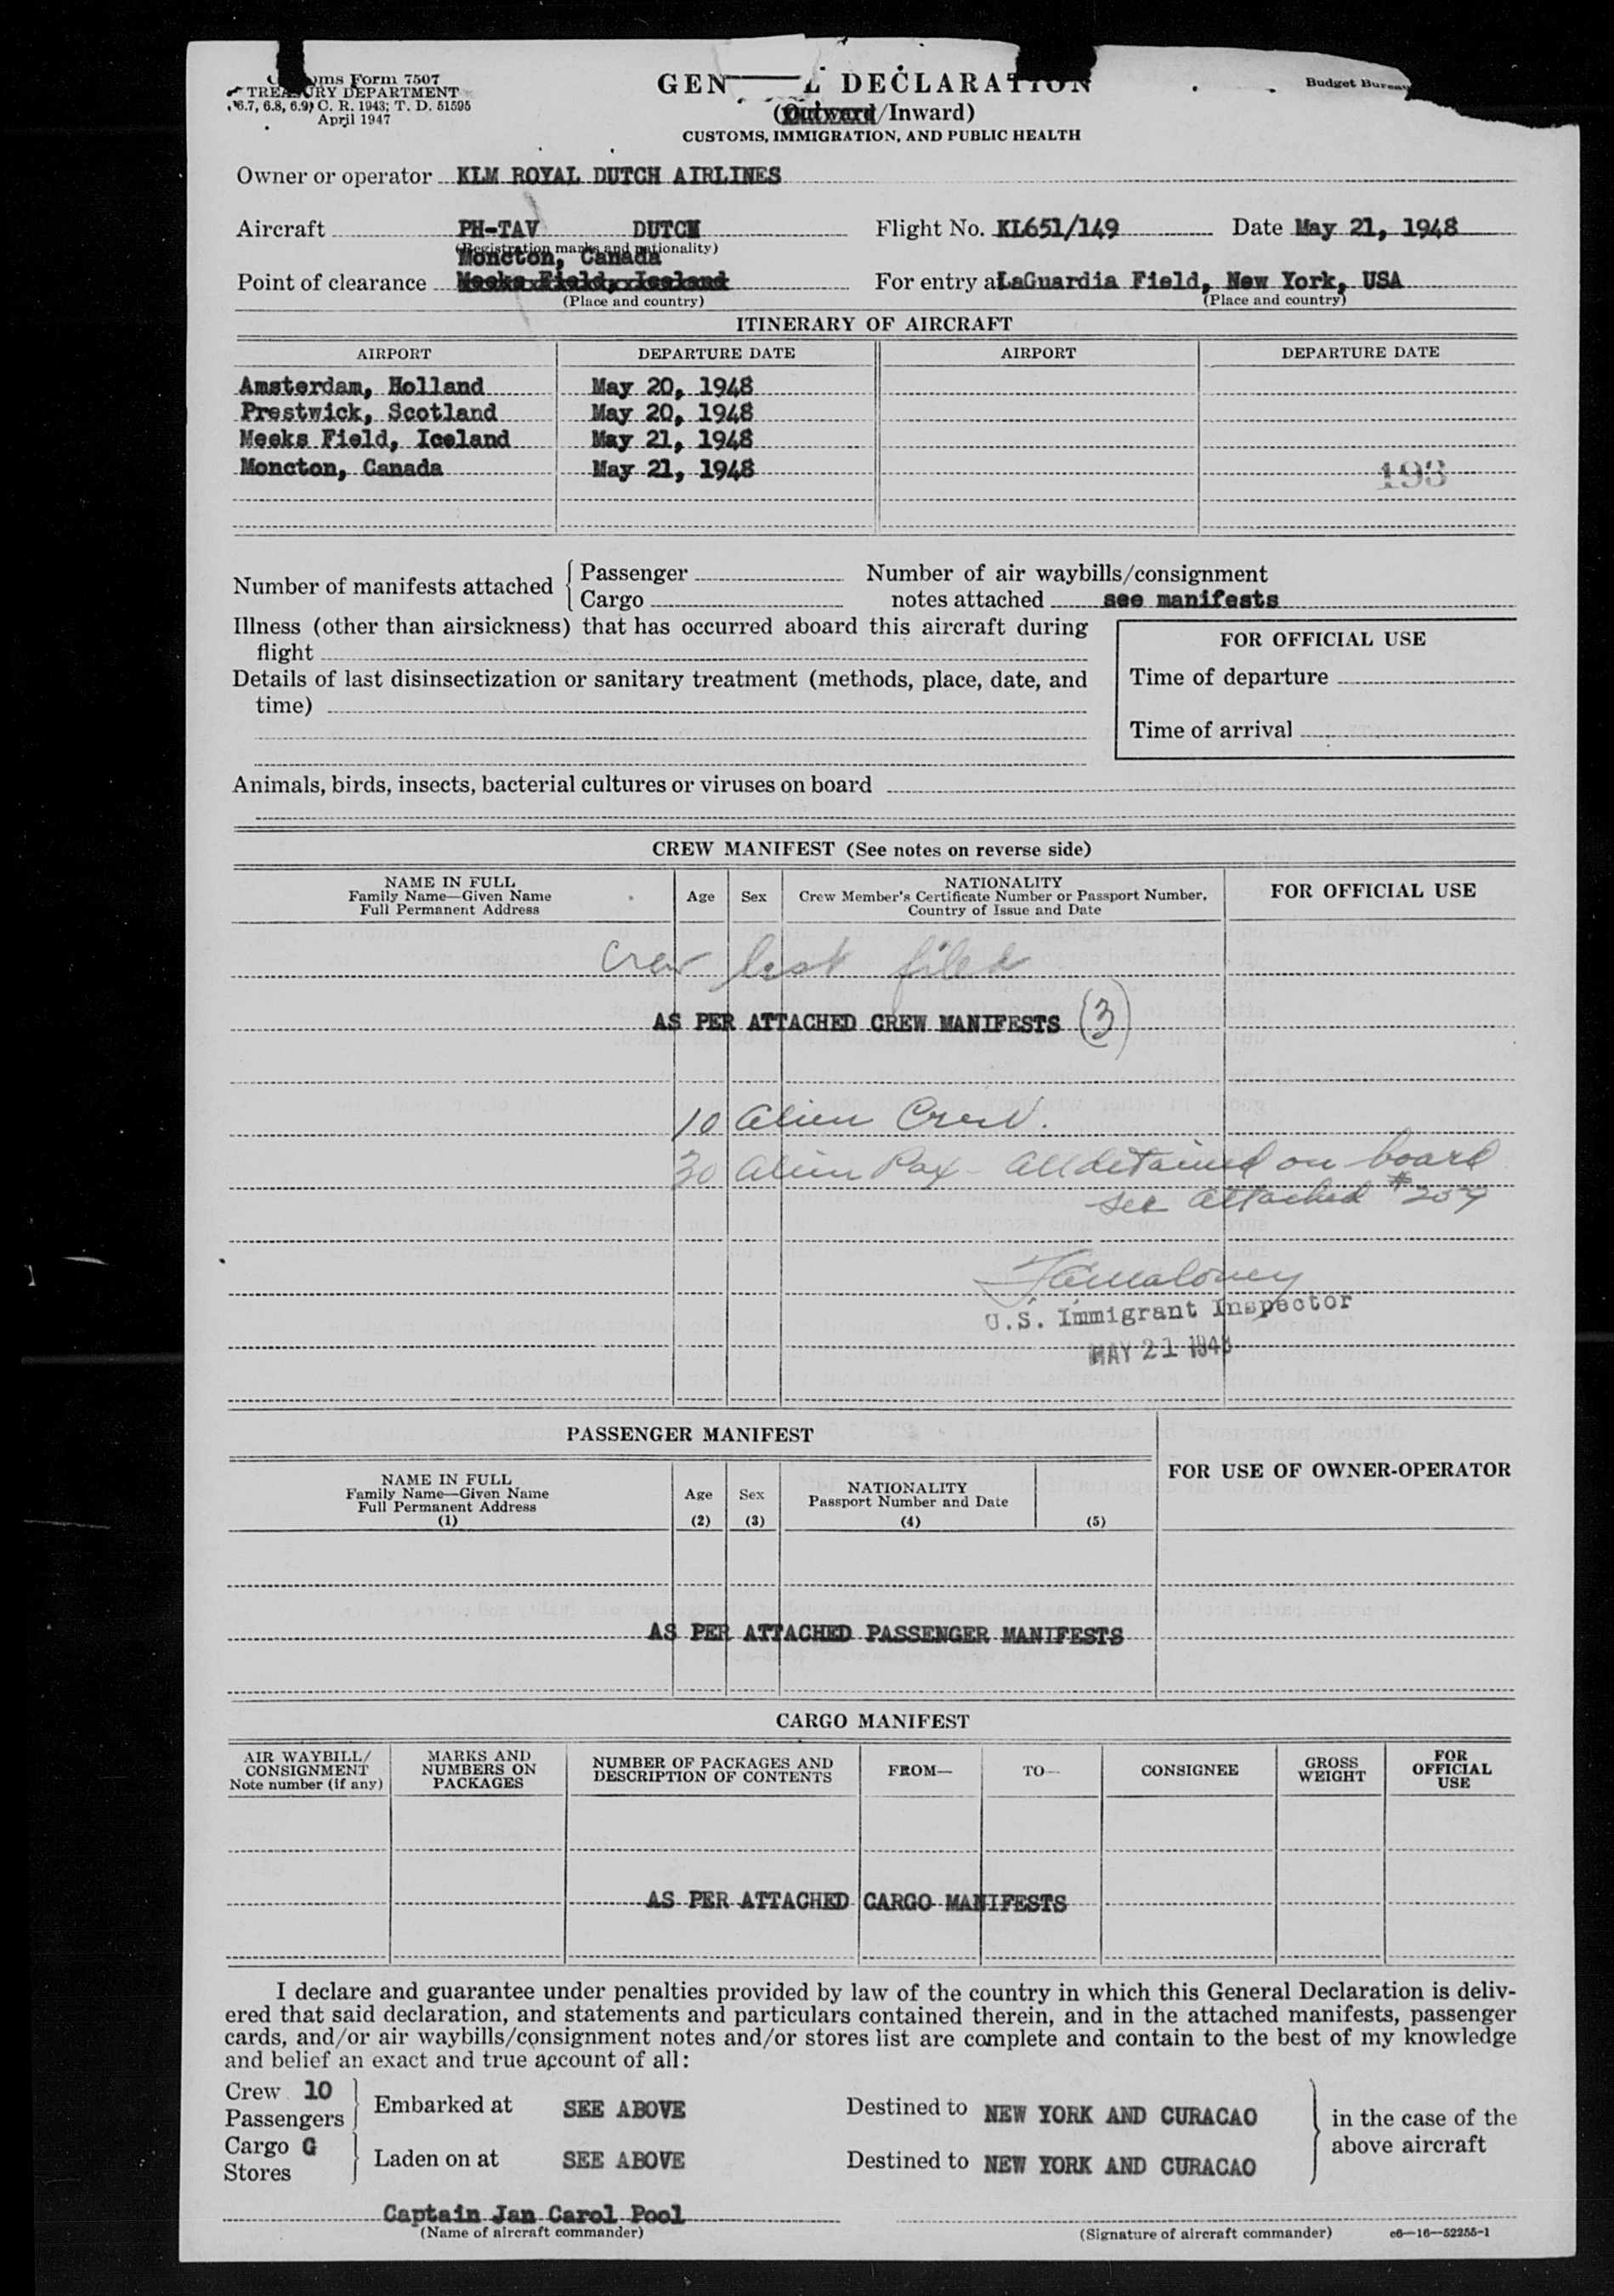 ms Form 7507
TREASURY DEPARTMENT
6.7, 6.8, 6.9, C. R. 1943; T. D. 51595
April 1947
GEN L DECLARATION
(Outward/Inward)
CUSTOMS, IMMIGRATION, AND PUBLIC HEALTH
Budget Bureau
Owner or operator KLM ROYAL DUTCH AIRLINES
Aircraft PH-TAV DUTCH Flight No. KL651/149 Date May 21, 1948
(Registration marks and nationality)
Moncton, Canada
Point of clearance Meeks Field, Iceland For entry at LaGuardia Field, New York, USA
(Place and country) (Place and country)
ITINERARY OF AIRCRAFT
AIRPORT DEPARTURE DATE AIRPORT DEPARTURE DATE
Amsterdam, Holland May 20, 1948
Prestwick, Scotland May 20, 1948
Meeks Field, Iceland May 21, 1948
Moncton, Canada May 21, 1948
193
Number of manifests attached { Passenger Number of air waybills/consignment
Cargo notes attached see manifests
Illness (other than airsickness) that has occurred aboard this aircraft during
flight
FOR OFFICIAL USE
Details of last disinsectization or sanitary treatment (methods, place, date, and
time)
Time of departure
Time of arrival
Animals, birds, insects, bacterial cultures or viruses on board
CREW MANIFEST (See notes on reverse side)
NAME IN FULL
Family Name—Given Name
Full Permanent Address
Age
Sex
NATIONALITY
Crew Member's Certificate Number or Passport Number,
Country of Issue and Date
FOR OFFICIAL USE
Crew list filed
AS PER ATTACHED CREW MANIFESTS (3)
10 alien Crew.
30 alien Pax - all detained on board
see attached #259
U.S. Immigrant Inspector
MAY 21 1948
PASSENGER MANIFEST
FOR USE OF OWNER-OPERATOR
NAME IN FULL
Family Name—Given Name
Full Permanent Address
(1)
Age
(2)
Sex
(3)
NATIONALITY
Passport Number and Date
(4)
(5)
AS PER ATTACHED PASSENGER MANIFESTS
CARGO MANIFEST
AIR WAYBILL/
CONSIGNMENT
Note number (if any)
MARKS AND
NUMBERS ON
PACKAGES
NUMBER OF PACKAGES AND
DESCRIPTION OF CONTENTS
FROM—
TO—
CONSIGNEE
GROSS
WEIGHT
FOR
OFFICIAL
USE
AS PER ATTACHED CARGO MANIFESTS
I declare and guarantee under penalties provided by law of the country in which this General Declaration is deliv-
ered that said declaration, and statements and particulars contained therein, and in the attached manifests, passenger
cards, and/or air waybills/consignment notes and/or stores list are complete and contain to the best of my knowledge
and belief an exact and true account of all:
Crew 10
Passengers
Embarked at SEE ABOVE Destined to NEW YORK AND CURACAO
Cargo G
Stores
Laden on at SEE ABOVE Destined to NEW YORK AND CURACAO
in the case of the
above aircraft
Captain Jan Carol Pool
(Name of aircraft commander) (Signature of aircraft commander) c6—16—52255-1